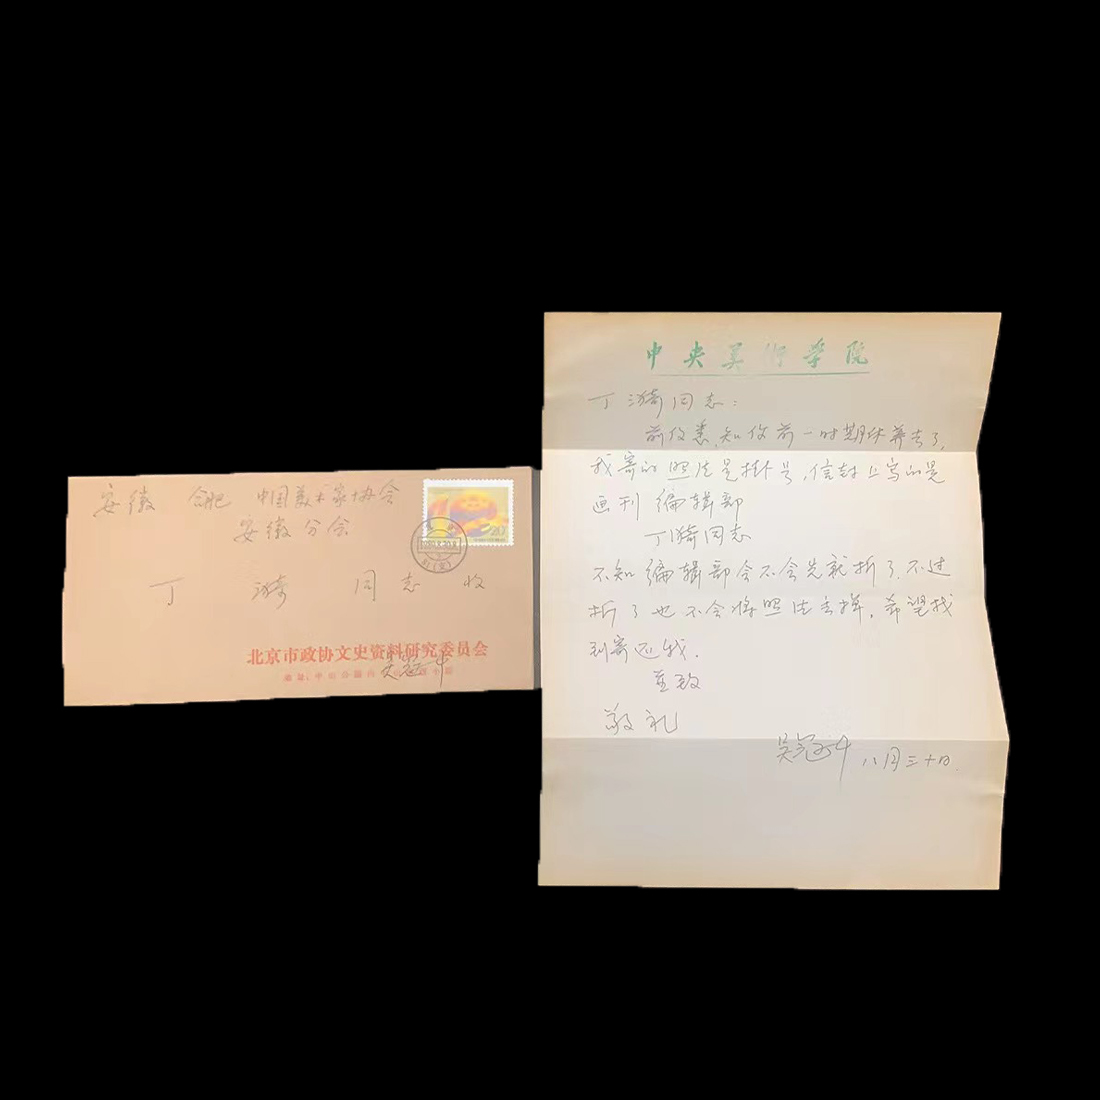 安徽 合肥 中国美术家协会
安徽分会
丁 漪 同志 收
20
北京市政协文史资料研究委员会
地址：中山公园内
吴冠中
中央美術学院
丁漪同志：
前仅悉,知你前一时期休养去了,
我寄的照片是挂号,信封上写的是
画刊 编辑部
丁漪同志
不知编辑部会不会先就拆了,不过
拆了也不会将照片丢掉,希望找
到寄还我.
至致
敬礼
吴冠中 八月三十日.